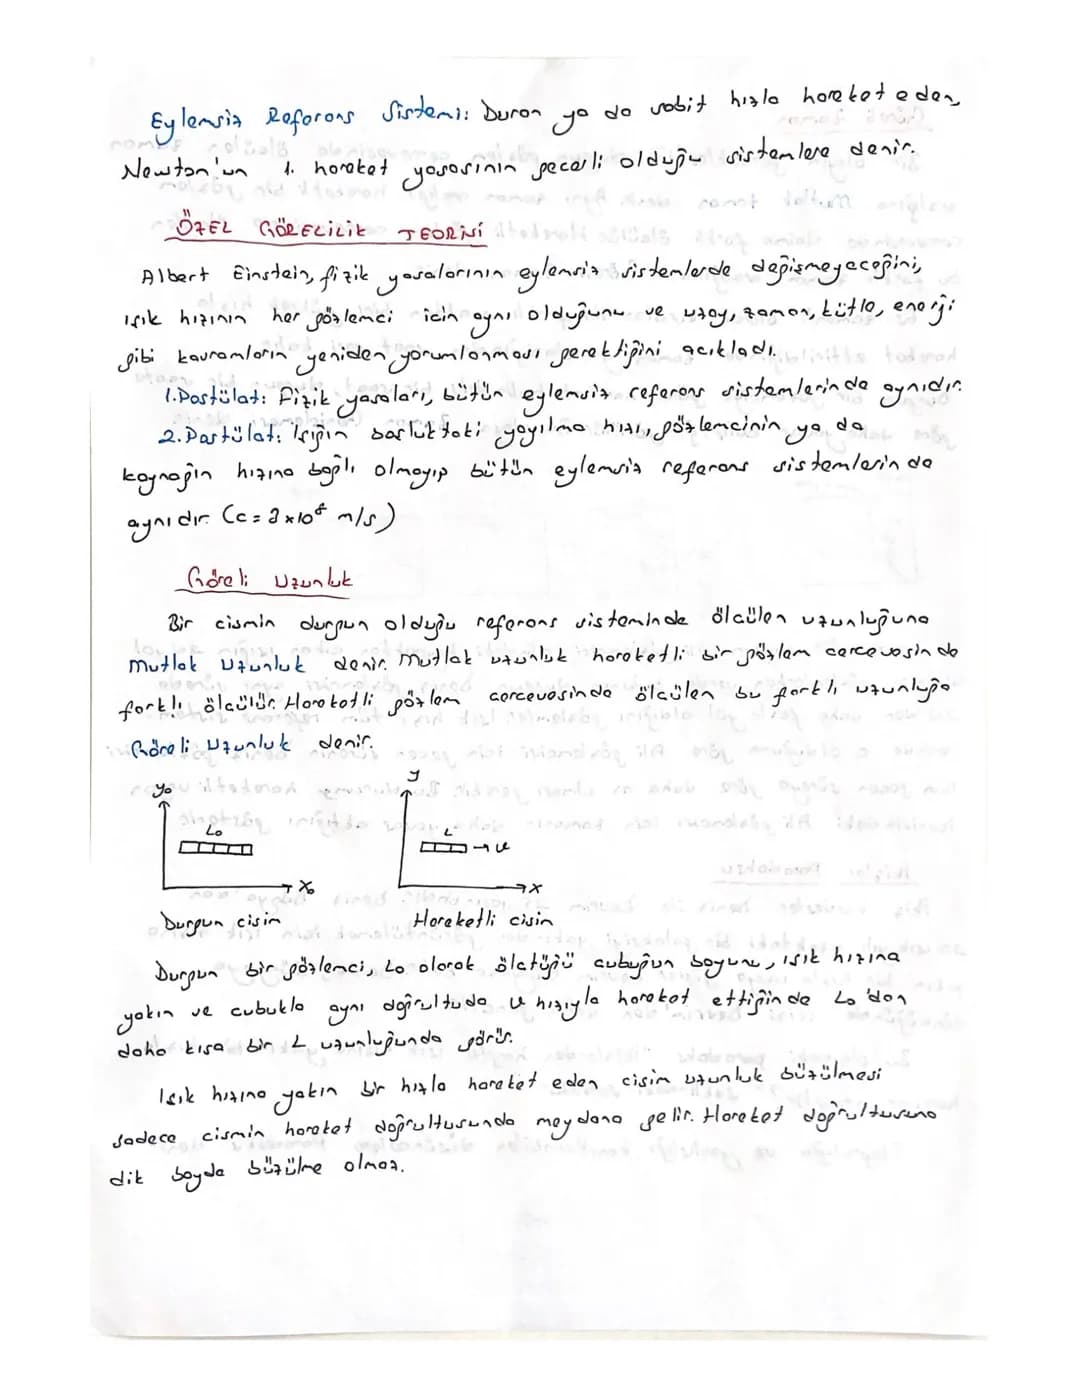 Eylemsiz Referans Sistemi: Duran ya da sabit hızla hareket eden,
Newton'un 1. hareket yasasının geçerli olduğu sistemlere denir.
ÖZEL GÖRELİLİK TEORİSİ
Albert Einstein, fizik yasalarının eylemsiz sistemlerde değişmeyeceğini,
ışık hızının her gözlemci için aynı olduğunu ve uzay, zaman, kütle, enerji
gibi kavramların yeniden yorumlanması gerektiğini açıkladı.
1.Postülat: Fizik yasaları, bütün eylemsiz referans sistemlerinde aynıdır.
2.Postülat: Işığın boşluktaki yayılma hızı, gözlemcinin ya da
kaynağın hızına bağlı olmayıp bütün eylemsiz referans sistemlerinde
aynıdır. (c = 3x10⁸ m/s)
Göreli Uzunluk
Bir cismin durgun olduğu referans sisteminde ölçülen uzunluğuna
mutlak uzunluk denir. Mutlak uzunluk hareketli bir gözlem çerçevesinde
farklı ölçülür. Hareketli gözlem çerçevesinde ölçülen bu farklı uzunluğa
Göreli Uzunluk denir.
y₀ y
L₀ L → v
x₀ x
Durgun cisim Hareketli cisim
Durgun bir gözlemci, L₀ olarak ölçtüğü çubuğun boyunu, ışık hızına
yakın ve çubukla aynı doğrultuda v hızıyla hareket ettiğinde L₀'dan
daha kısa bir L uzunluğunda görür.
Işık hızına yakın bir hızla hareket eden cisim uzunluk büzülmesi
sadece cismin hareket doğrultusunda meydana gelir. Hareket doğrultusuna
dik boyda büzülme olmaz.